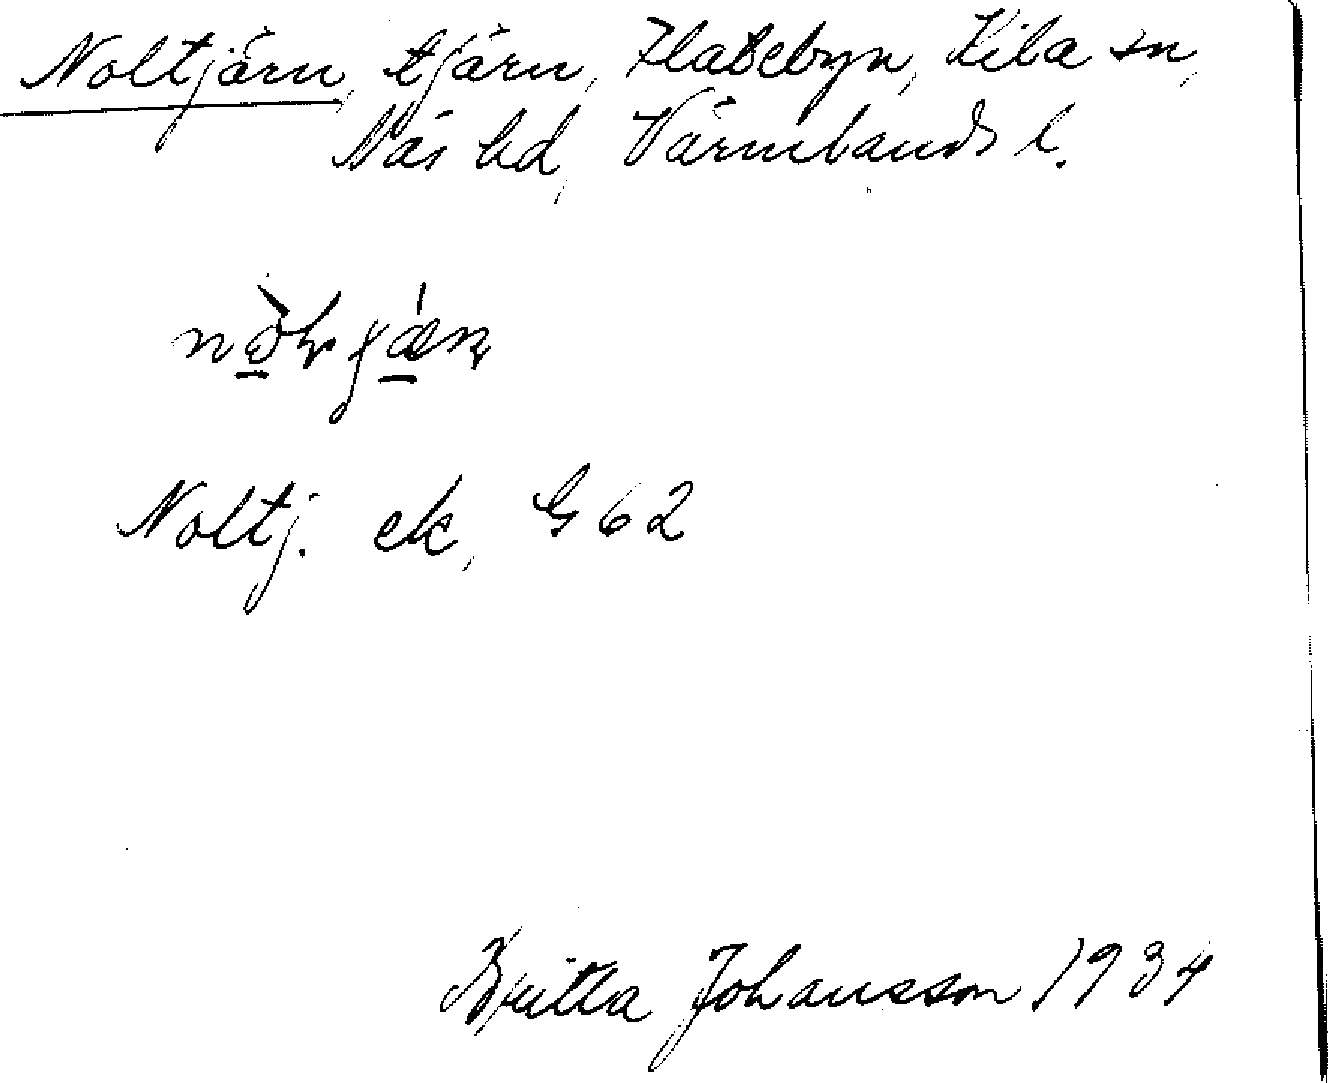 Noltjärn, tjärn, Flatebyn, Kila sn,
Näs hd, Värmlands l.
Noltj. ek, G 62
Britta Johansson 1934